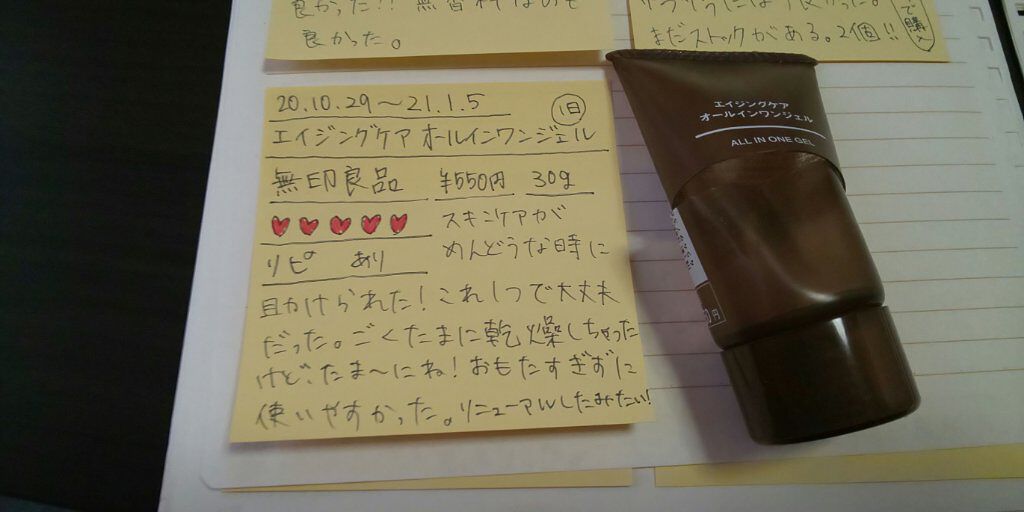 良かった!! 無香料なのも
良かった。
まだストックがある。2個!!
で購入
20.10.29〜21.1.5
1日
エイジングケア オールインワンジェル
無印良品 ¥550円 30g
♥♥♥♥♥
リピ あり
スキンケアが
めんどうな時に
助けられた!これ1つで大丈夫
だった。ごくたまに乾燥しちゃった
けど、たま〜にね!おもたすぎずに
使いやすかった。リニューアルしたみたい!
エイジングケア
オールインワンジェル
ALL IN ONE GEL